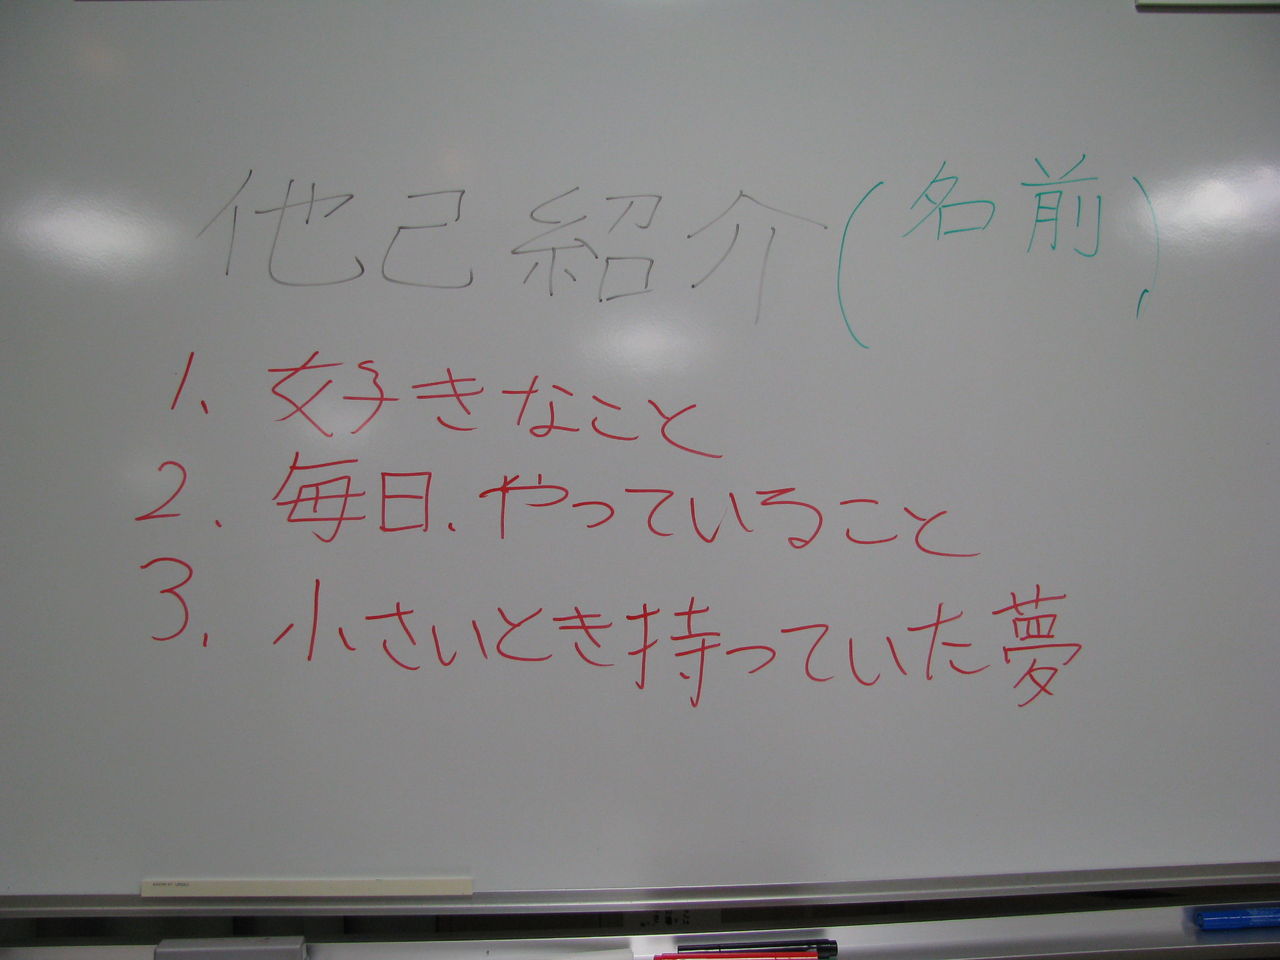 他己紹介(名前)
1. 好きなこと
2. 毎日.やっていること
3. 小さいとき持っていた夢